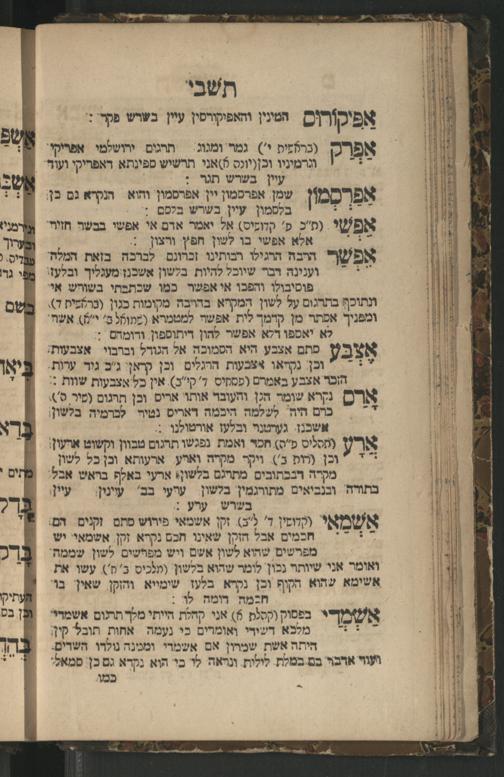 תשבי
אַפִּיקוֹרוּס המינין והאפיקורסין עיין בשרש פקר :
אַפְרֵק (בראשית י') גמר ומגוג תרגום ירושלמי אפריקי
וגרמניו וכן (יונה א) אני תרשיש ספינתא דאפריקי ועוד
עיין בשרש תגר :
אֲפַרְסְמוֹן שמן אפרסמון יין אפרסמון והוא הנקרא גם כן
בלסמון עיין בשרש בלסם :
אֶפְשִׁי (ת"כ פ' קדושים) אל יאמר אדם אי אפשי בבשר חזיר
אלא אפשי בו לשון חפץ ורצון :
אֶפְשָׁר הרבה הרגילו רבותינו זכרונם לברכה בזאת המלה
וענינה דבר שיוכל להיות בלשון אשכנז מעגליך ובלעז
פוסיבולו והפכו אי אפשר כמו שכתבתי בשורש אי
ונתוסף בתרגום על לשון המקרא בהרבה מקומות כגון (בראשית ד)
ומפניך אסתר מן קדמך לית אפשר למטמרא (שמואל ב' י"א) אשר
לא יאספו דלא אפשר להון דיתוספון ודומהם :
אֶצְבַּע סתם אצבע היא הסמוכה אל הגודל וברבוי אצבעות
וכן נקראו אצבעות הרגלים וכן קראן ג"כ גיד ערות
הזכר אצבע באמרם (פסחים ד' קי"ב) אין כל אצבעות שוות :
אָרַם נקרא שומר הגן והעובד אותו אריס וכן תרגום (שיר ח')
כרם היה לשלמה היכמה דאריס נטיר לכרמיה בלשון
אשכנז גערטנר ובלעז אורטולנו :
אֲרַע (תהלים פ"ה) חסד ואמת נפגשו תרגום טבוון וקשוט ארעון
וכן (רות ב') ויקר מקרה וארע ארעותא וכן כל לשון
מקרה דבכתובים מתרגם בלשון ארעי באלף בראש אבל
בתורה ובנביאים מתורגמין בלשון ערעי בב' עיינין עיין
בשרש ערע :
אַשְׁמַאי (קדושין ד' ל"ב) זקן אשמאי פירוש סתם זקנים הם
חכמים אבל הזקן שאינו חכם נקרא זקן אשמאי יש
מפרשים שהוא לשון אשם ויש מפרשים לשון שממה
ואומר אני שיותר נכון לומר שהוא בלשון (מלכים ב' ח') עשו את
אשימא שהוא הקוף וכן נקרא בלעז שימייא והזקן שאין בו
חכמה דומה לו :
אַשְׁמְדַי בפסוק (קהלת א) אני קהלת הייתי מלך תרגום אשמדי
מלכא דשידי ואומרים כי נעמה אחות תובל קין
היתה אשת שמרון אם אשמדי וממנה נולדו השדים
ועוד אדבר בם במלת לילית ונראה לי כי הוא נקרא גם כן סמאל
כמו